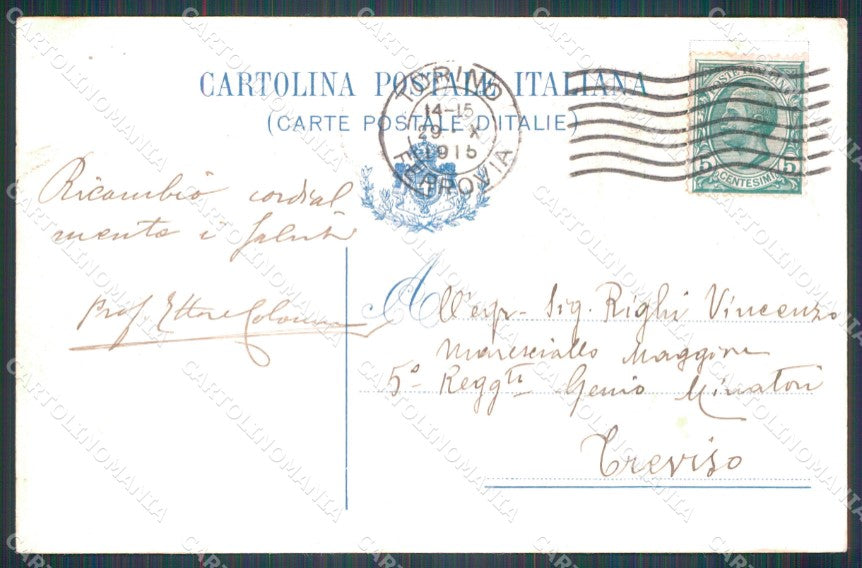 CARTOLINA POSTALE ITALIANA
(CARTE POSTALE D'ITALIE)
TORINO
14-15
29-X
1915
FERROVIA
POSTE ITALIANE
5 5
CENTESIMI
Ricambio cordial
mente i saluti
Prof. Ettore Colonna
All'egr- Sig. Righi Vincenzo
Maresciallo Maggiore
5º Reggti Genio Minatori
Treviso
CARTOLINOMANIA